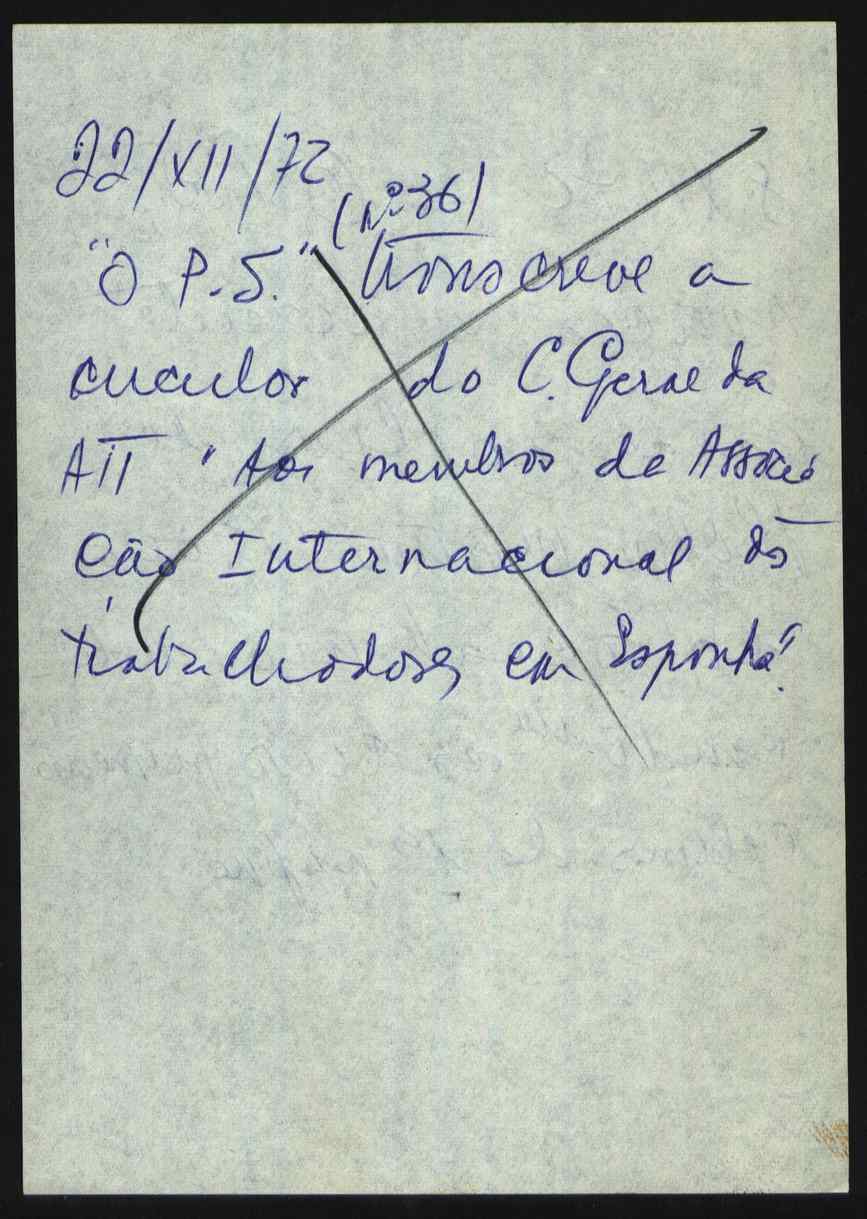 22/XII/72
(Nº 36)
"O P.S." transcreve a
circular do C. Geral da
AIT "Aos membros da Associa
ção Internacional dos
trabalhadores em Espanha".